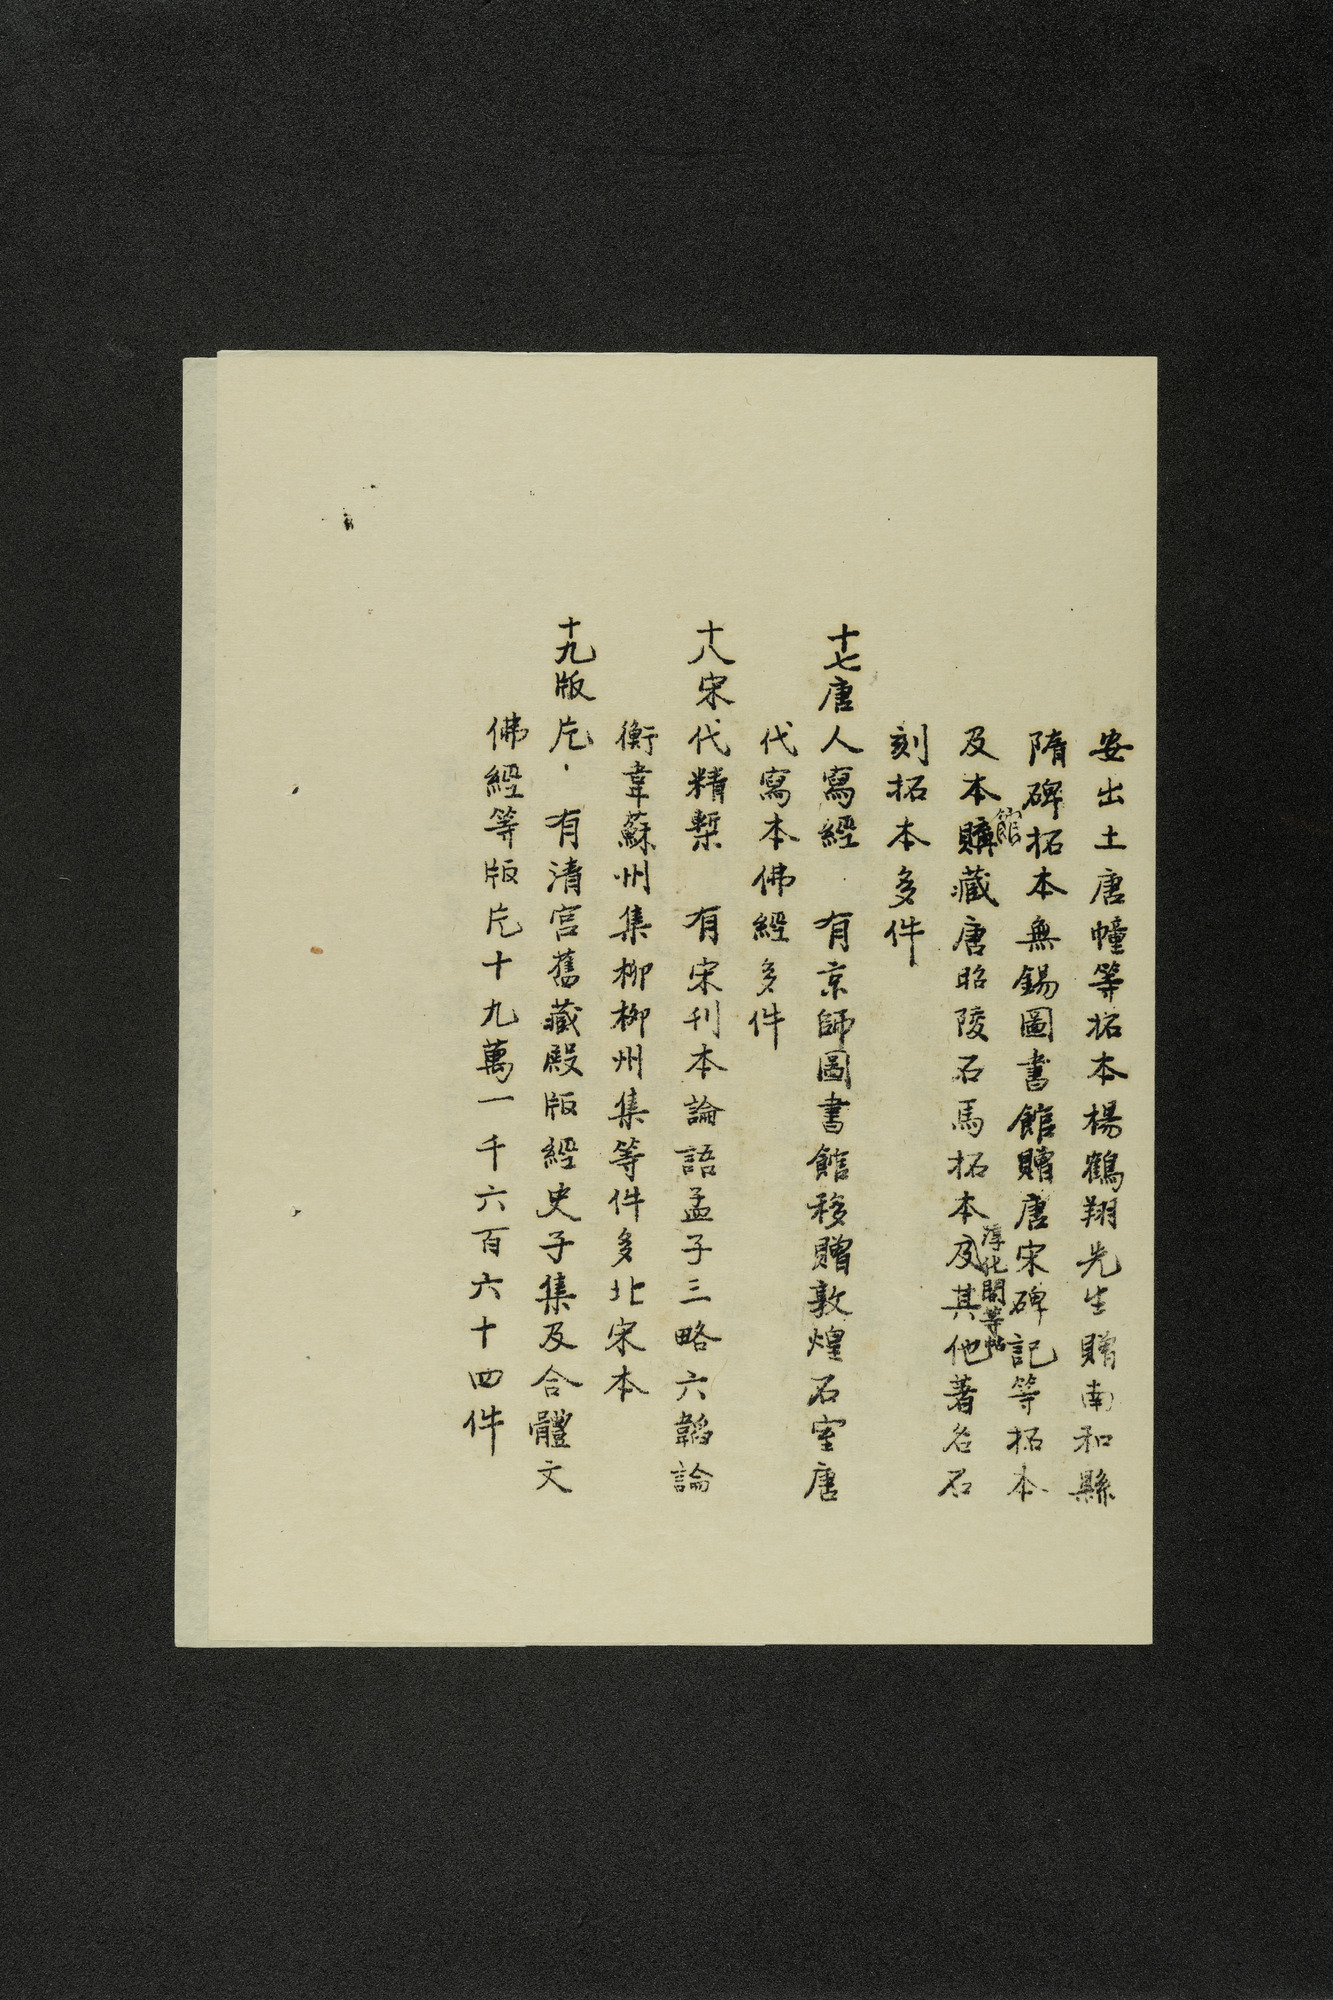 安出土唐幢等拓本楊鶴翔先生贈南和縣
隋碑拓本無錫圖書館贈唐宋碑記等拓本
及本館購藏唐昭陵石馬拓本淳化閣等帖及其他著名石
刻拓本多件
十七唐人寫經　有京師圖書館移贈敦煌石室唐
代寫本佛經多件
十八宋代精槧　有宋刊本論語孟子三略六韜論
衡韋蘇州集柳柳州集等件多北宋本
十九版片．有清宮舊藏殿版經史子集及合體文
佛經等版片十九萬一千六百六十四件